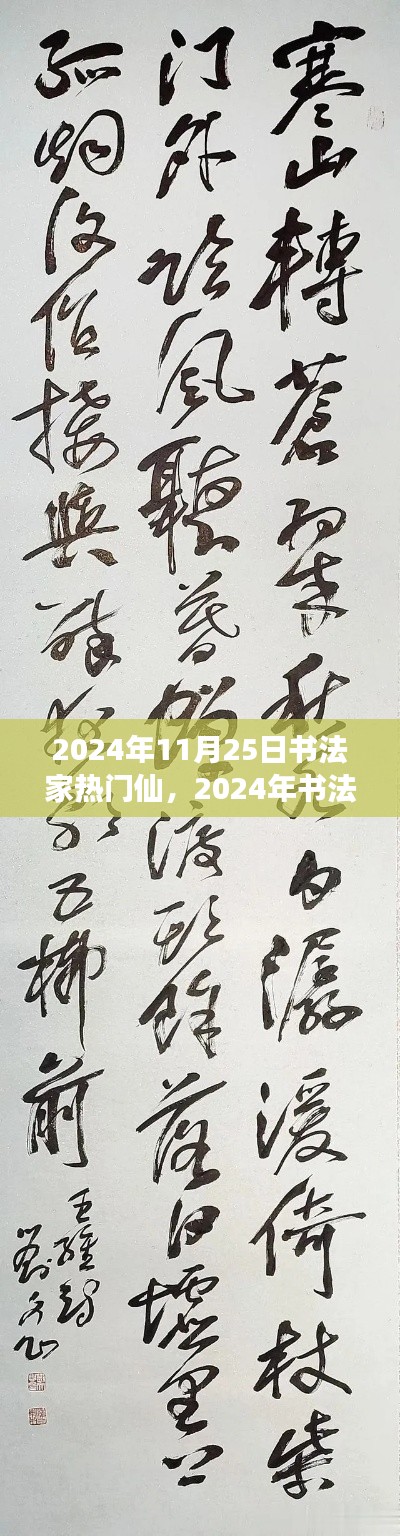 寒山轉蒼翠秋水日潺湲倚杖柴
门外临风聽暮蟬渡头餘落日墟里上
孤烟復值接輿醉狂歌五柳前
王維詩
劉
2024年11月25日书法
家热门仙，2024年书法